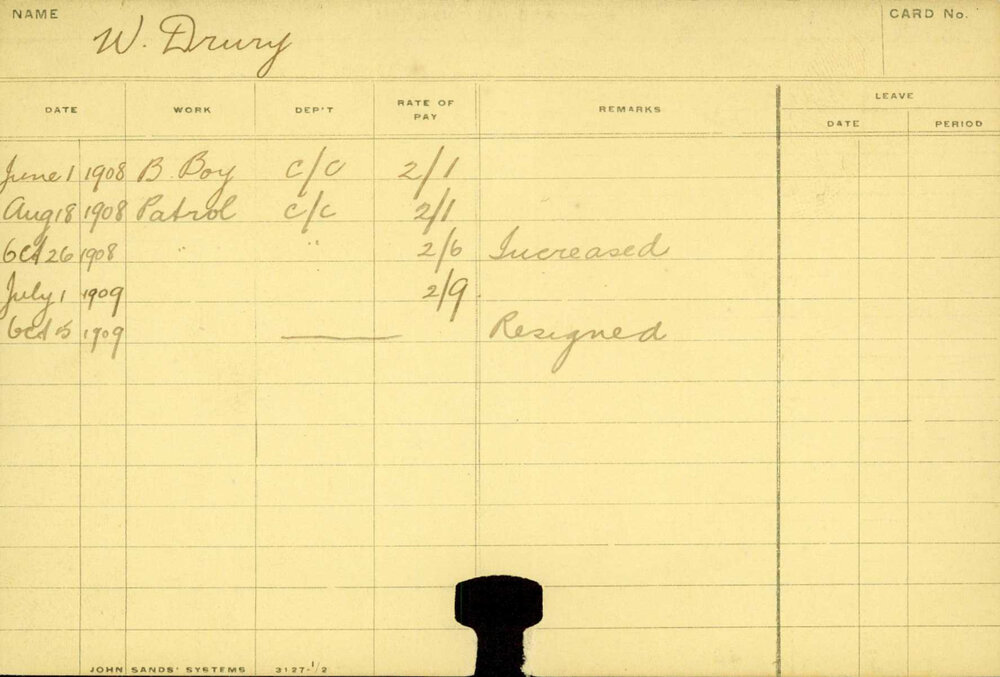 NAME W. Drury CARD No.
DATE WORK DEP'T RATE OF PAY REMARKS LEAVE
DATE PERIOD
June 1 1908 B. Boy c/c 2/1
Aug 18 1908 Patrol c/c 2/1
Oct 26 1908 " " 2/6 Increased
July 1 1909 2/9
Oct 5 1909 — Resigned
JOHN SANDS' SYSTEMS 3127-1/2